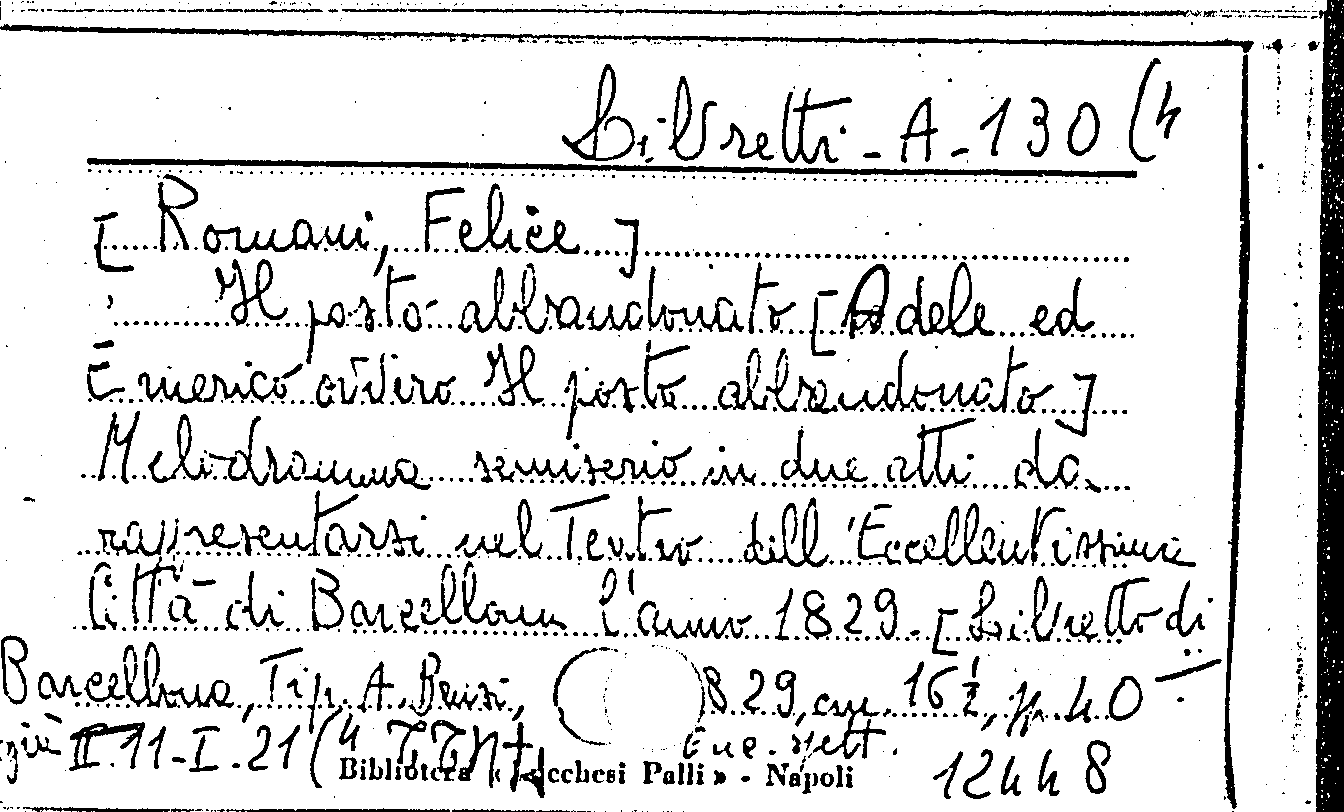 Libretti - A - 130 (4
[ Romani, Felice ]
Il posto abbandonato [ Adele ed
Emerico ovvero Il posto abbandonato ]
Melodramma semiserio in due atti da
rappresentarsi nel Teatro dell'Eccellentissima
Città di Barcellona l'anno 1829. [ Libretto di
Barcellona, Tip. A. Brusi, 829, cm. 16 ½, pp. 40
già II.11-I.21 (4
Biblioteca « Lucchesi Palli » - Napoli 12448